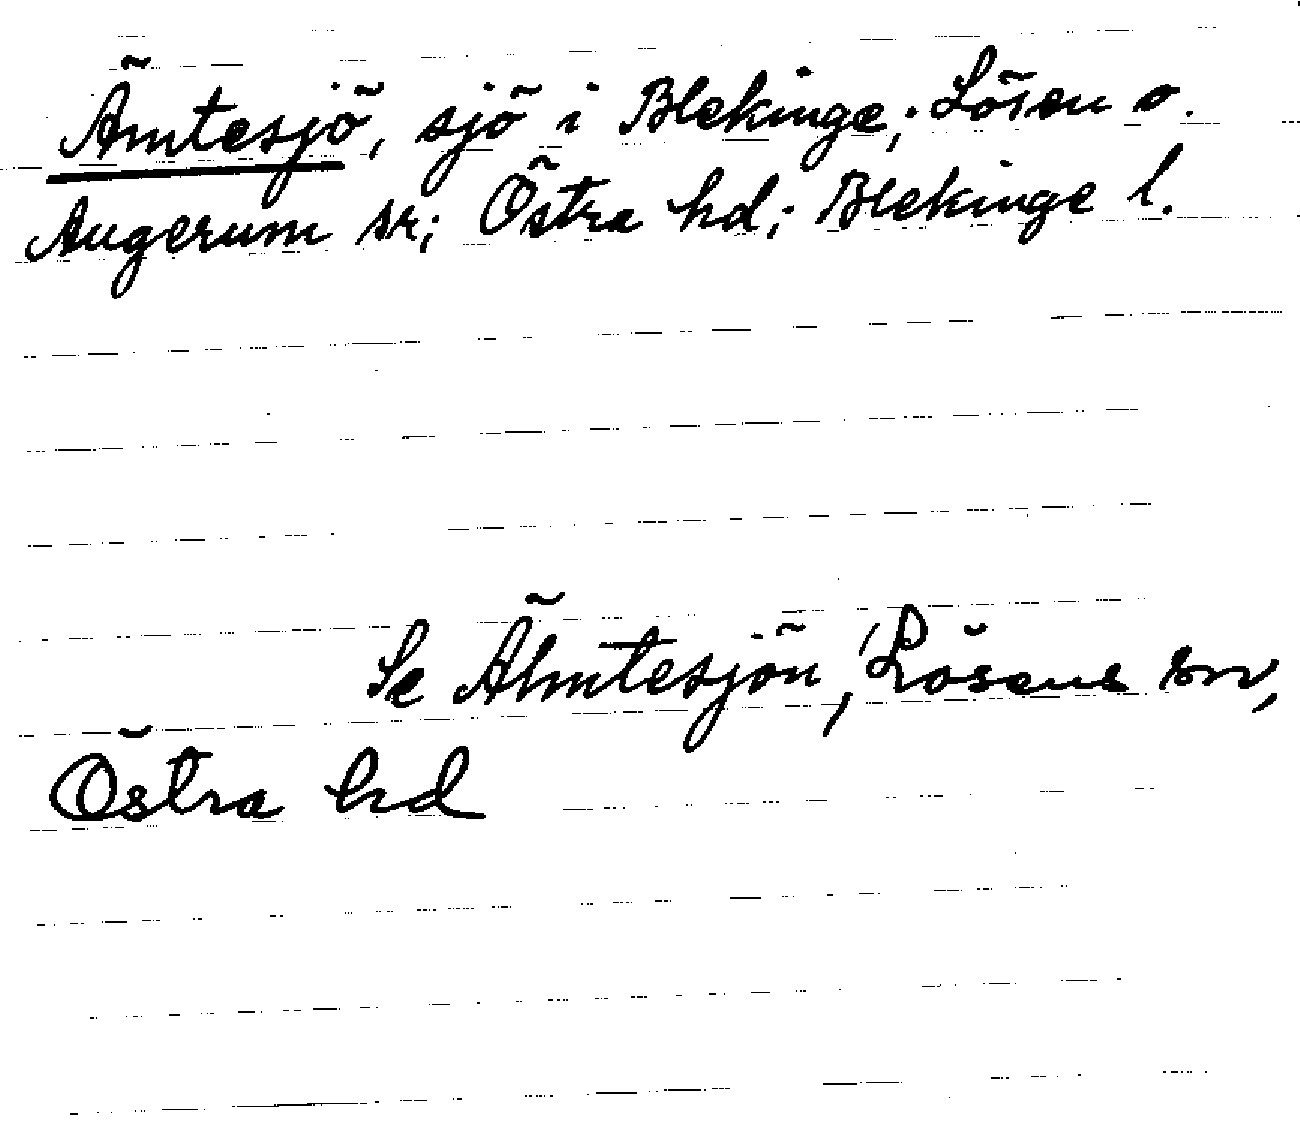 Ämtesjö, sjö i Blekinge; Lösen o.
Augerum sn; Östra hd; Blekinge l.
Se Älmtesjön, Lösens sn,
Östra hd